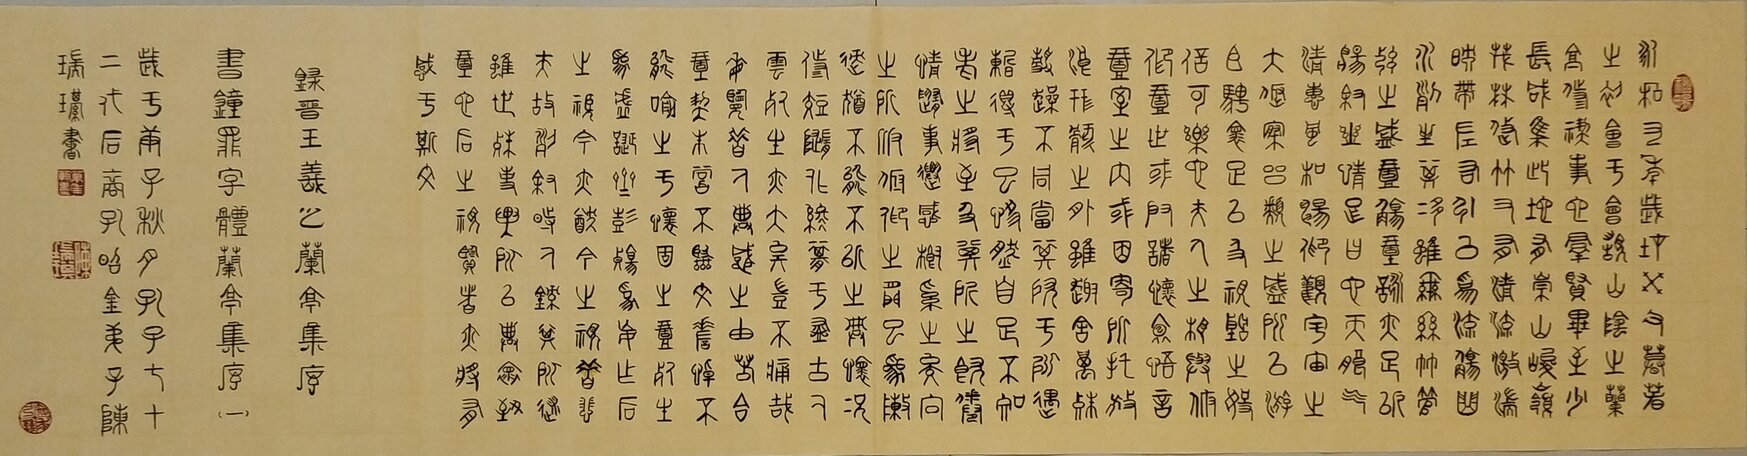 永和九年歲在癸丑暮春
之初會于會稽山陰之蘭
亭修禊事也群賢畢至少
長咸集此地有崇山峻嶺
茂林修竹又有清流激湍
映帶左右引以為流觴曲
水列坐其次雖無絲竹管
弦之盛一觴一詠亦足以
暢敘幽情是日也天朗氣
清惠風和暢仰觀宇宙之
大俯察品類之盛所以遊
目騁懷足以極視聽之娛
信可樂也夫人之相與俯
仰一世或取諸懷抱悟言
一室之內或因寄所託放
浪形骸之外雖趣舍萬殊
靜躁不同當其欣于所遇
暫得于己怏然自足不知
老之將至及其所之既倦
情隨事遷感慨係之矣向
之所欣俛仰之間以為陳
迹猶不能不以之興懷況
修短隨化終期于盡古人
云死生亦大矣豈不痛哉
每覽昔人興感之由若合
一契未嘗不臨文嗟悼不
能喻之于懷固知一死生
為虛誕齊彭殤為妄作后
之視今亦猶今之視昔悲
夫故列敘時人錄其所述
雖世殊事異所以興懷致
一也后之視覽者亦將有
感于斯文
錄晉王羲之蘭亭集序
書鐘鼎字體蘭亭集序(一)
歲于庚子秋月孔子七十
二代后裔孔昭金弟子陳
瑞瓘書